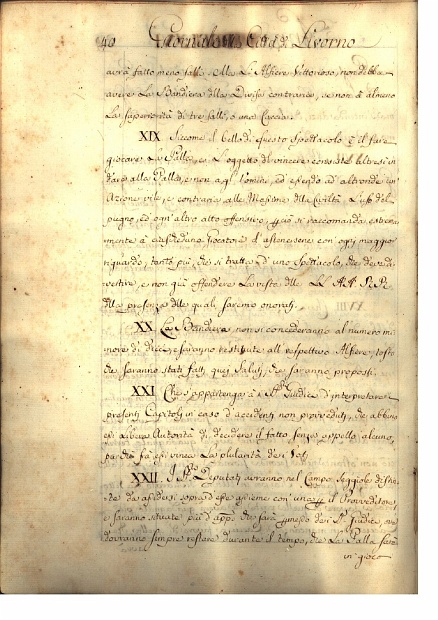 40 Giornale Città di Livorno
avrà fatto meno falli, e la L'Alfiere Vittorioso, non debba
avere La Bandiera della Divisa contraria, se non à almeno
La superiorità di tre falli, o una Caccia.
XIX Siccome il bello di questo Spettacolo è il fare
giocare La Palla, e L'oggetto di vincere consiste bltresi in
dare alla Palla, e non agl'Uomini, ed essendo ad altronde un
Azione vile, e contraria alle Massime della Civiltà L'uso del
pugno, ed ogni altro atto offensivo, si raccomanda estrema
mente à ciascheduno Giocatore d'astenersene con ogni maggior
riguardo, tanto più, che si tratta d'uno Spettacolo, che deve di
vertire, e non già offendere La vista delle LL. AA. RR.
della presenza delle quali saremo onorati.
XX La Bandiera non si concederanno al numero mi
nore di Dieci, e saranno restituite all respettivo Alfiere, tosto
che saranno stati fatti quei Saluti, che saranno proposti.
XXI Che s'appartenga à i SS.ri Giudici d'interpretare i
presenti Capitoli in caso d'accidenti non provveduti, che abbino
essi libera Autorità di decidere il fatto senza appello alcuno,
purchè frà essi vinca La pluralità dei Voti.
XXII I SS.ri Deputati avranno nel Campo Seggiole distin
te da assidersi sopra d'esse assieme con il Provveditore,
e saranno situate più d'appo che sarà permesso dei SS.ri Giudici, ove
dovranno sempre restare durante il tempo, che La Palla sarà
in gioco